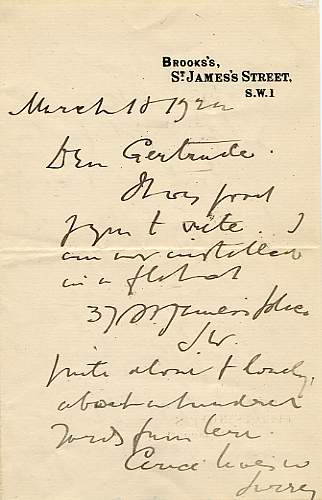 BROOKS'S,
ST JAMES'S STREET,
S.W.1
March 18 1922
Dear Gertrude.
It was good
of you to write. I
am now installed
in a flat at
37 St James's Place
S.W.
quite alone & lonely,
about a hundred
yards from here.
lives in
Surrey